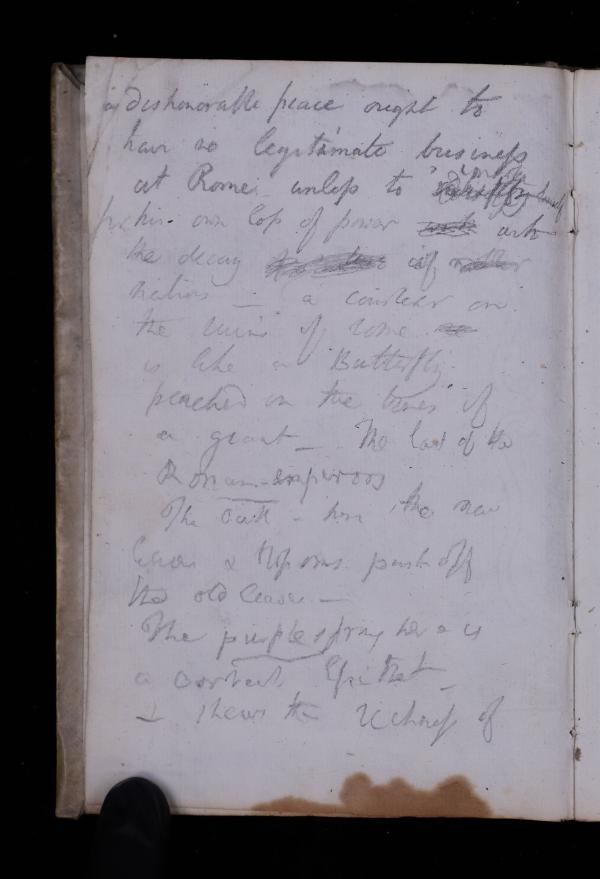 a dishonorable peace ought to
have no legitimate business
at Rome unless to
for his own loss of power with
the decay of
nations — a courtier on
the ruins of Rome
is like a Butterfly
perched on the bones of
a giant — The last of the
Roman emperors
The oak – here the new
leaves & blossoms push off
the old leaves —
The purple spring here is
a correct Epithet —
I shews the richness of